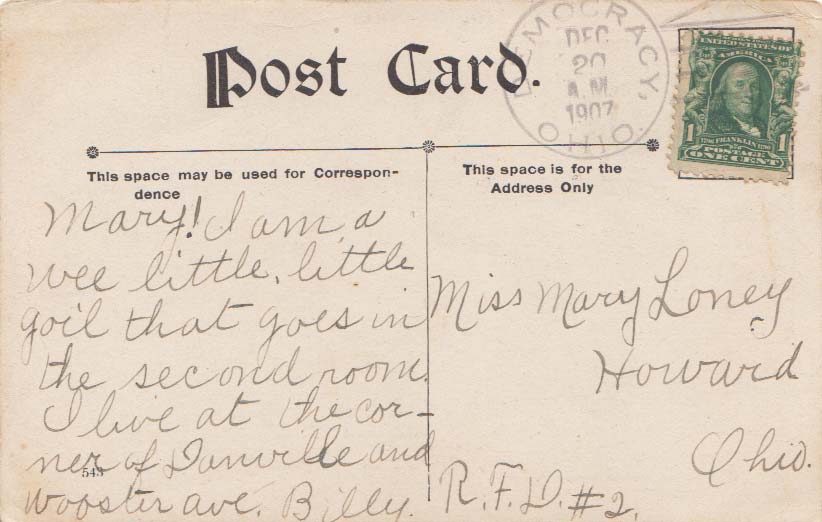 Post Card.
DEMOCRACY, OHIO
DEC
20
A.M.
1907
UNITED STATES OF
AMERICA
1790 FRANKLIN 1790
1 POSTAGE 1
ONE CENT
This space may be used for Correspon-
dence
This space is for the
Address Only
Mary! I am a
wee little, little
goil that goes in
the second room.
I live at the cor-
ner of Danville and
Wooster ave. Billy.
543
Miss Mary Loney
Howard
Ohio.
R.F.D. #2.